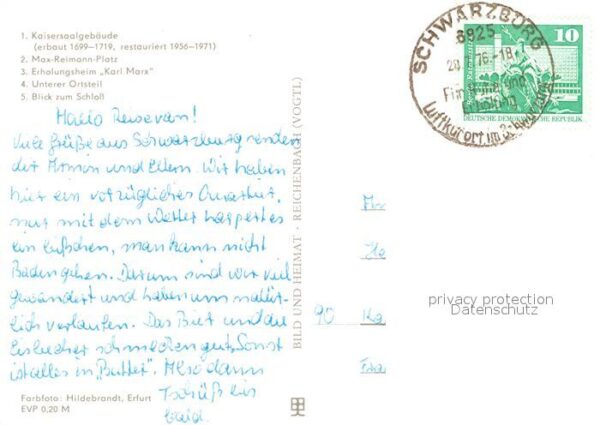 1. Kaisersaalgebäude
(erbaut 1699–1719, restauriert 1956–1971)
2. Max-Reimann-Platz
3. Erholungsheim „Karl Marx"
4. Unterer Ortsteil
5. Blick zum Schloß
Hallo
Viele Grüße aus Schwarzburg senden
dir und Eltern. Wir haben
hier ein vorzügliches Quartier,
nur mit dem Wetter hapert es
ein bißchen, man kann nicht
Baden gehen. Darum sind wir viel
gewandert und haben uns natür-
lich verlaufen. Das Bier und die
Eisbecher schmecken gut. Sonst
ist alles in „Butter". Also dann
Tschüß bis
bald.
Farbfoto: Hildebrandt, Erfurt
EVP 0,20 M
BILD UND HEIMAT · REICHENBACH (VOGTL)
SCHWARZBURG
6825
76.-18
Erholung
Luftkurort im
10
DEUTSCHE DEMOKRATISCHE REPUBLIK
90
privacy protection
Datenschutz